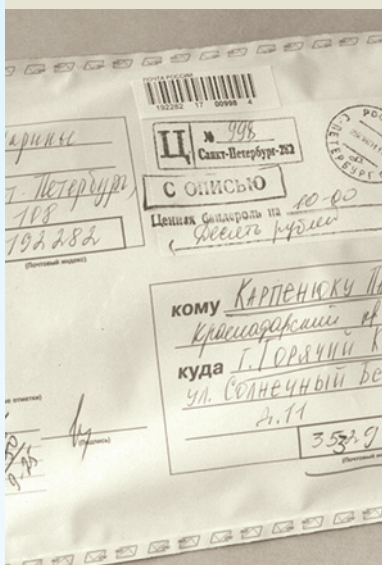 ПОЧТА РОССИИ
192282 17 00998 4
Ц № 998
Санкт-Петербург-282
С ОПИСЬЮ
Ценная бандероль на 10-00
Десять рублей
арины
т-Петербург,
108
192282
(Почтовый индекс)
кому Карпенюку
Краснодарский
куда г. Горячий
ул. Солнечный
д. 11
3532
(Почтовый
ые отметки)
(Подпись)